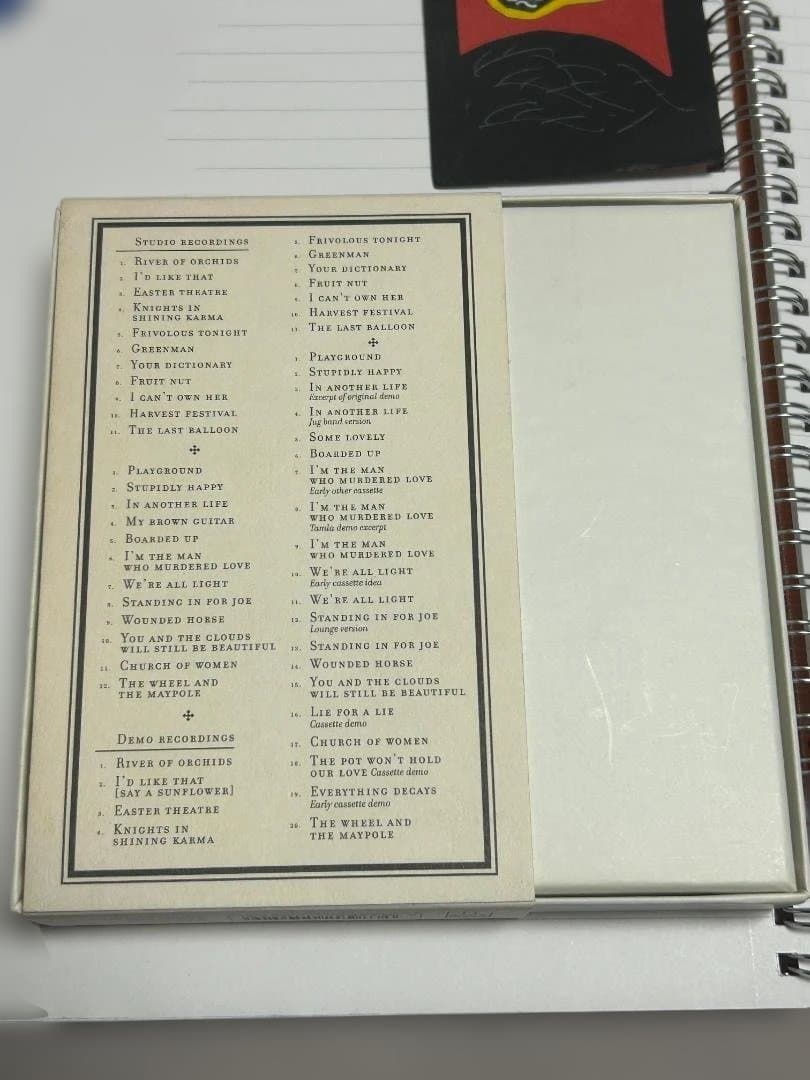 STUDIO RECORDINGS
1. RIVER OF ORCHIDS
2. I'D LIKE THAT
3. EASTER THEATRE
4. KNIGHTS IN
SHINING KARMA
5. FRIVOLOUS TONIGHT
6. GREENMAN
7. YOUR DICTIONARY
8. FRUIT NUT
9. I CAN'T OWN HER
10. HARVEST FESTIVAL
11. THE LAST BALLOON
1. PLAYGROUND
2. STUPIDLY HAPPY
3. IN ANOTHER LIFE
4. MY BROWN GUITAR
5. BOARDED UP
6. I'M THE MAN
WHO MURDERED LOVE
7. WE'RE ALL LIGHT
8. STANDING IN FOR JOE
9. WOUNDED HORSE
10. YOU AND THE CLOUDS
WILL STILL BE BEAUTIFUL
11. CHURCH OF WOMEN
12. THE WHEEL AND
THE MAYPOLE
DEMO RECORDINGS
1. RIVER OF ORCHIDS
2. I'D LIKE THAT
[SAY A SUNFLOWER]
3. EASTER THEATRE
4. KNIGHTS IN
SHINING KARMA
5. FRIVOLOUS TONIGHT
6. GREENMAN
7. YOUR DICTIONARY
8. FRUIT NUT
9. I CAN'T OWN HER
10. HARVEST FESTIVAL
11. THE LAST BALLOON
1. PLAYGROUND
2. STUPIDLY HAPPY
3. IN ANOTHER LIFE
Excerpt of original demo
4. IN ANOTHER LIFE
Jug band version
5. SOME LOVELY
6. BOARDED UP
7. I'M THE MAN
WHO MURDERED LOVE
Early other cassette
8. I'M THE MAN
WHO MURDERED LOVE
Tamla demo excerpt
9. I'M THE MAN
WHO MURDERED LOVE
10. WE'RE ALL LIGHT
Early cassette idea
11. WE'RE ALL LIGHT
12. STANDING IN FOR JOE
Lounge version
13. STANDING IN FOR JOE
14. WOUNDED HORSE
15. YOU AND THE CLOUDS
WILL STILL BE BEAUTIFUL
16. LIE FOR A LIE
Cassette demo
17. CHURCH OF WOMEN
18. THE POT WON'T HOLD
OUR LOVE Cassette demo
19. EVERYTHING DECAYS
Early cassette demo
20. THE WHEEL AND
THE MAYPOLE